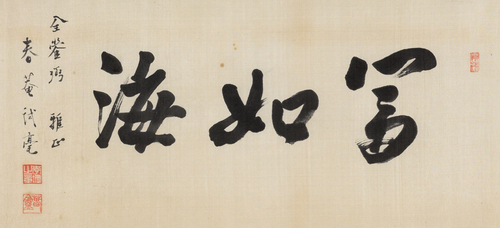 富如海
全鎣弼 雅正
春菴試毫